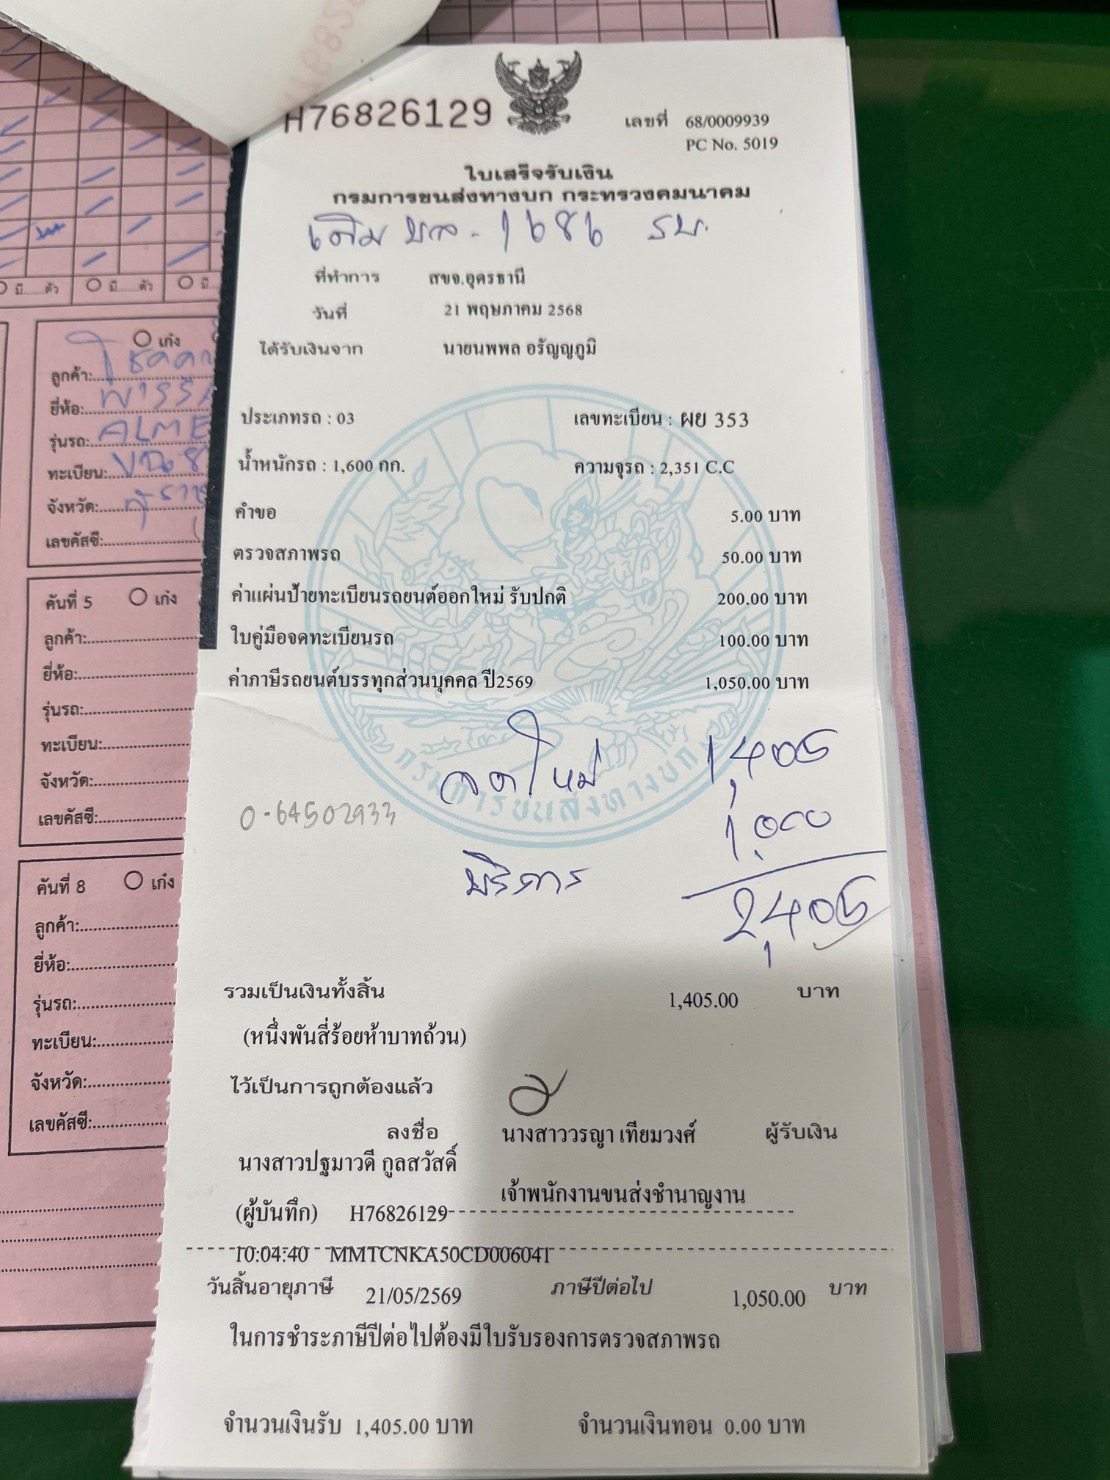 H76826129
เลขที่ 68/0009939
PC No. 5019
ใบเสร็จรับเงิน
กรมการขนส่งทางบก กระทรวงคมนาคม
เดิม บล - 1686 รบ.
ที่ทำการ สขจ.อุดรธานี
วันที่ 21 พฤษภาคม 2568
ได้รับเงินจาก นายนพพล อรัญญภูมิ
ประเภทรถ : 03 เลขทะเบียน : ผย 353
น้ำหนักรถ : 1,600 กก. ความจุรถ : 2,351 C.C
คำขอ 5.00 บาท
ตรวจสภาพรถ 50.00 บาท
ค่าแผ่นป้ายทะเบียนรถยนต์ออกใหม่ รับปกติ 200.00 บาท
ใบคู่มือจดทะเบียนรถ 100.00 บาท
ค่าภาษีรถยนต์บรรทุกส่วนบุคคล ปี2569 1,050.00 บาท
กรมการขนส่งทางบก
จดใหม่ 1,405
0-64502933
บริการ 1,000
2,405
รวมเป็นเงินทั้งสิ้น 1,405.00 บาท
(หนึ่งพันสี่ร้อยห้าบาทถ้วน)
ไว้เป็นการถูกต้องแล้ว
ลงชื่อ นางสาววรญา เทียมวงศ์ ผู้รับเงิน
นางสาวปฐมาวดี กูลสวัสดิ์
เจ้าพนักงานขนส่งชำนาญงาน
(ผู้บันทึก) H76826129
10:04:40 MMTCNKA50CD006041
วันสิ้นอายุภาษี 21/05/2569 ภาษีปีต่อไป 1,050.00 บาท
ในการชำระภาษีปีต่อไปต้องมีใบรับรองการตรวจสภาพรถ
จำนวนเงินรับ 1,405.00 บาท จำนวนเงินทอน 0.00 บาท
มี ตัว มี ตัว มี
เก๋ง
ลูกค้า:
ยี่ห้อ:
รุ่นรถ:
ทะเบียน:
จังหวัด:
เลขคัสซี:
คันที่ 5 เก๋ง
ลูกค้า:
ยี่ห้อ:
รุ่นรถ:
ทะเบียน:
จังหวัด:
เลขคัสซี:
คันที่ 8 เก๋ง
ลูกค้า:
ยี่ห้อ:
รุ่นรถ:
ทะเบียน:
จังหวัด:
เลขคัสซี: